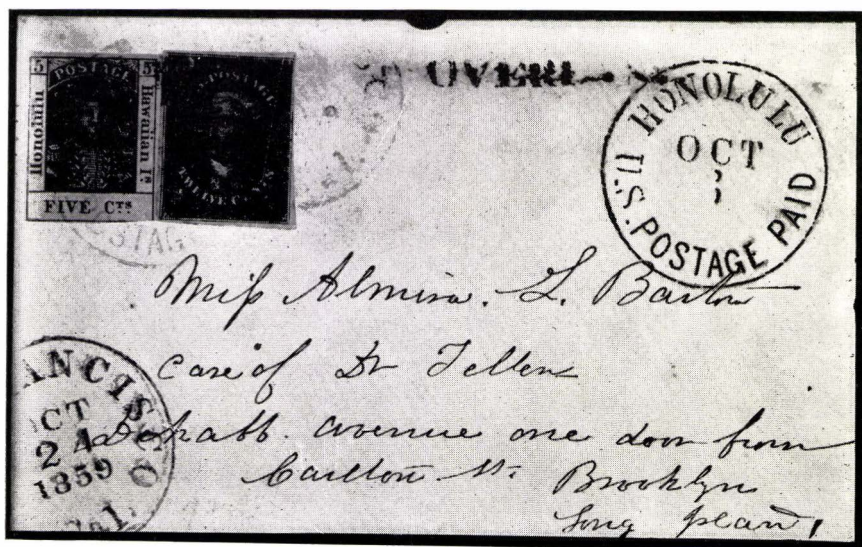 5 POSTAGE 5
Honolulu
Hawaiian Is
FIVE Cts
POSTAGE
OVERL
HONOLULU
OCT
U.S. POSTAGE PAID
STAG
Miss Almira. L. Barton
Care of Dr Tellers
avenue one door from
Carlton St. Brooklyn
Long
ANCISCO
OCT
24
1859
Cal.